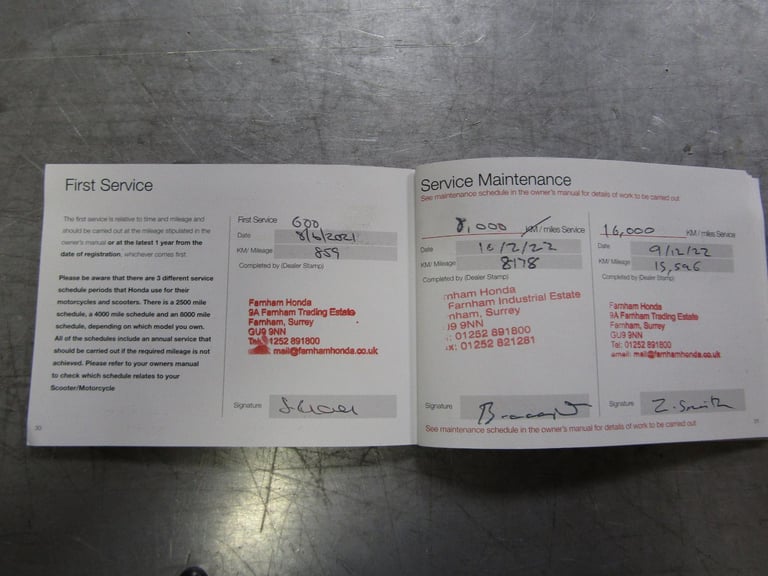 First Service
The first service is relative to time and mileage and
should be carried out at the mileage stipulated in the
owner's manual or at the latest 1 year from the
date of registration, whichever comes first.
Please be aware that there are 3 different service
schedule periods that Honda use for their
motorcycles and scooters. There is a 2500 mile
schedule, a 4000 mile schedule and an 8000 mile
schedule, depending on which model you own.
All of the schedules include an annual service that
should be carried out if the required mileage is not
achieved. Please refer to your owners manual
to check which schedule relates to your
Scooter/Motorcycle
30
First Service 600
Date 8/6/2021
KM/ Mileage 859
Completed by (Dealer Stamp)
Farnham Honda
9A Farnham Trading Estate
Farnham, Surrey
GU9 9NN
Tel: 01252 891800
mail@farnhamhonda.co.uk
Signature
Service Maintenance
See maintenance schedule in the owner's manual for details of work to be carried out
8,000 KM / miles Service
Date 10/2/22
KM/ Mileage 8178
Completed by (Dealer Stamp)
rnham Honda
Farnham Industrial Estate
rnham, Surrey
J9 9NN
: 01252 891800
x: 01252 821281
Signature
16,000 KM / miles Service
Date 9/12/22
KM/ Mileage 15,596
Completed by (Dealer Stamp)
Farnham Honda
9A Farnham Trading Estate
Farnham, Surrey
GU9 9NN
Tel: 01252 891800
email: mail@farnhamhonda.co.uk
Signature Z. Smith
See maintenance schedule in the owner's manual for details of work to be carried out
31